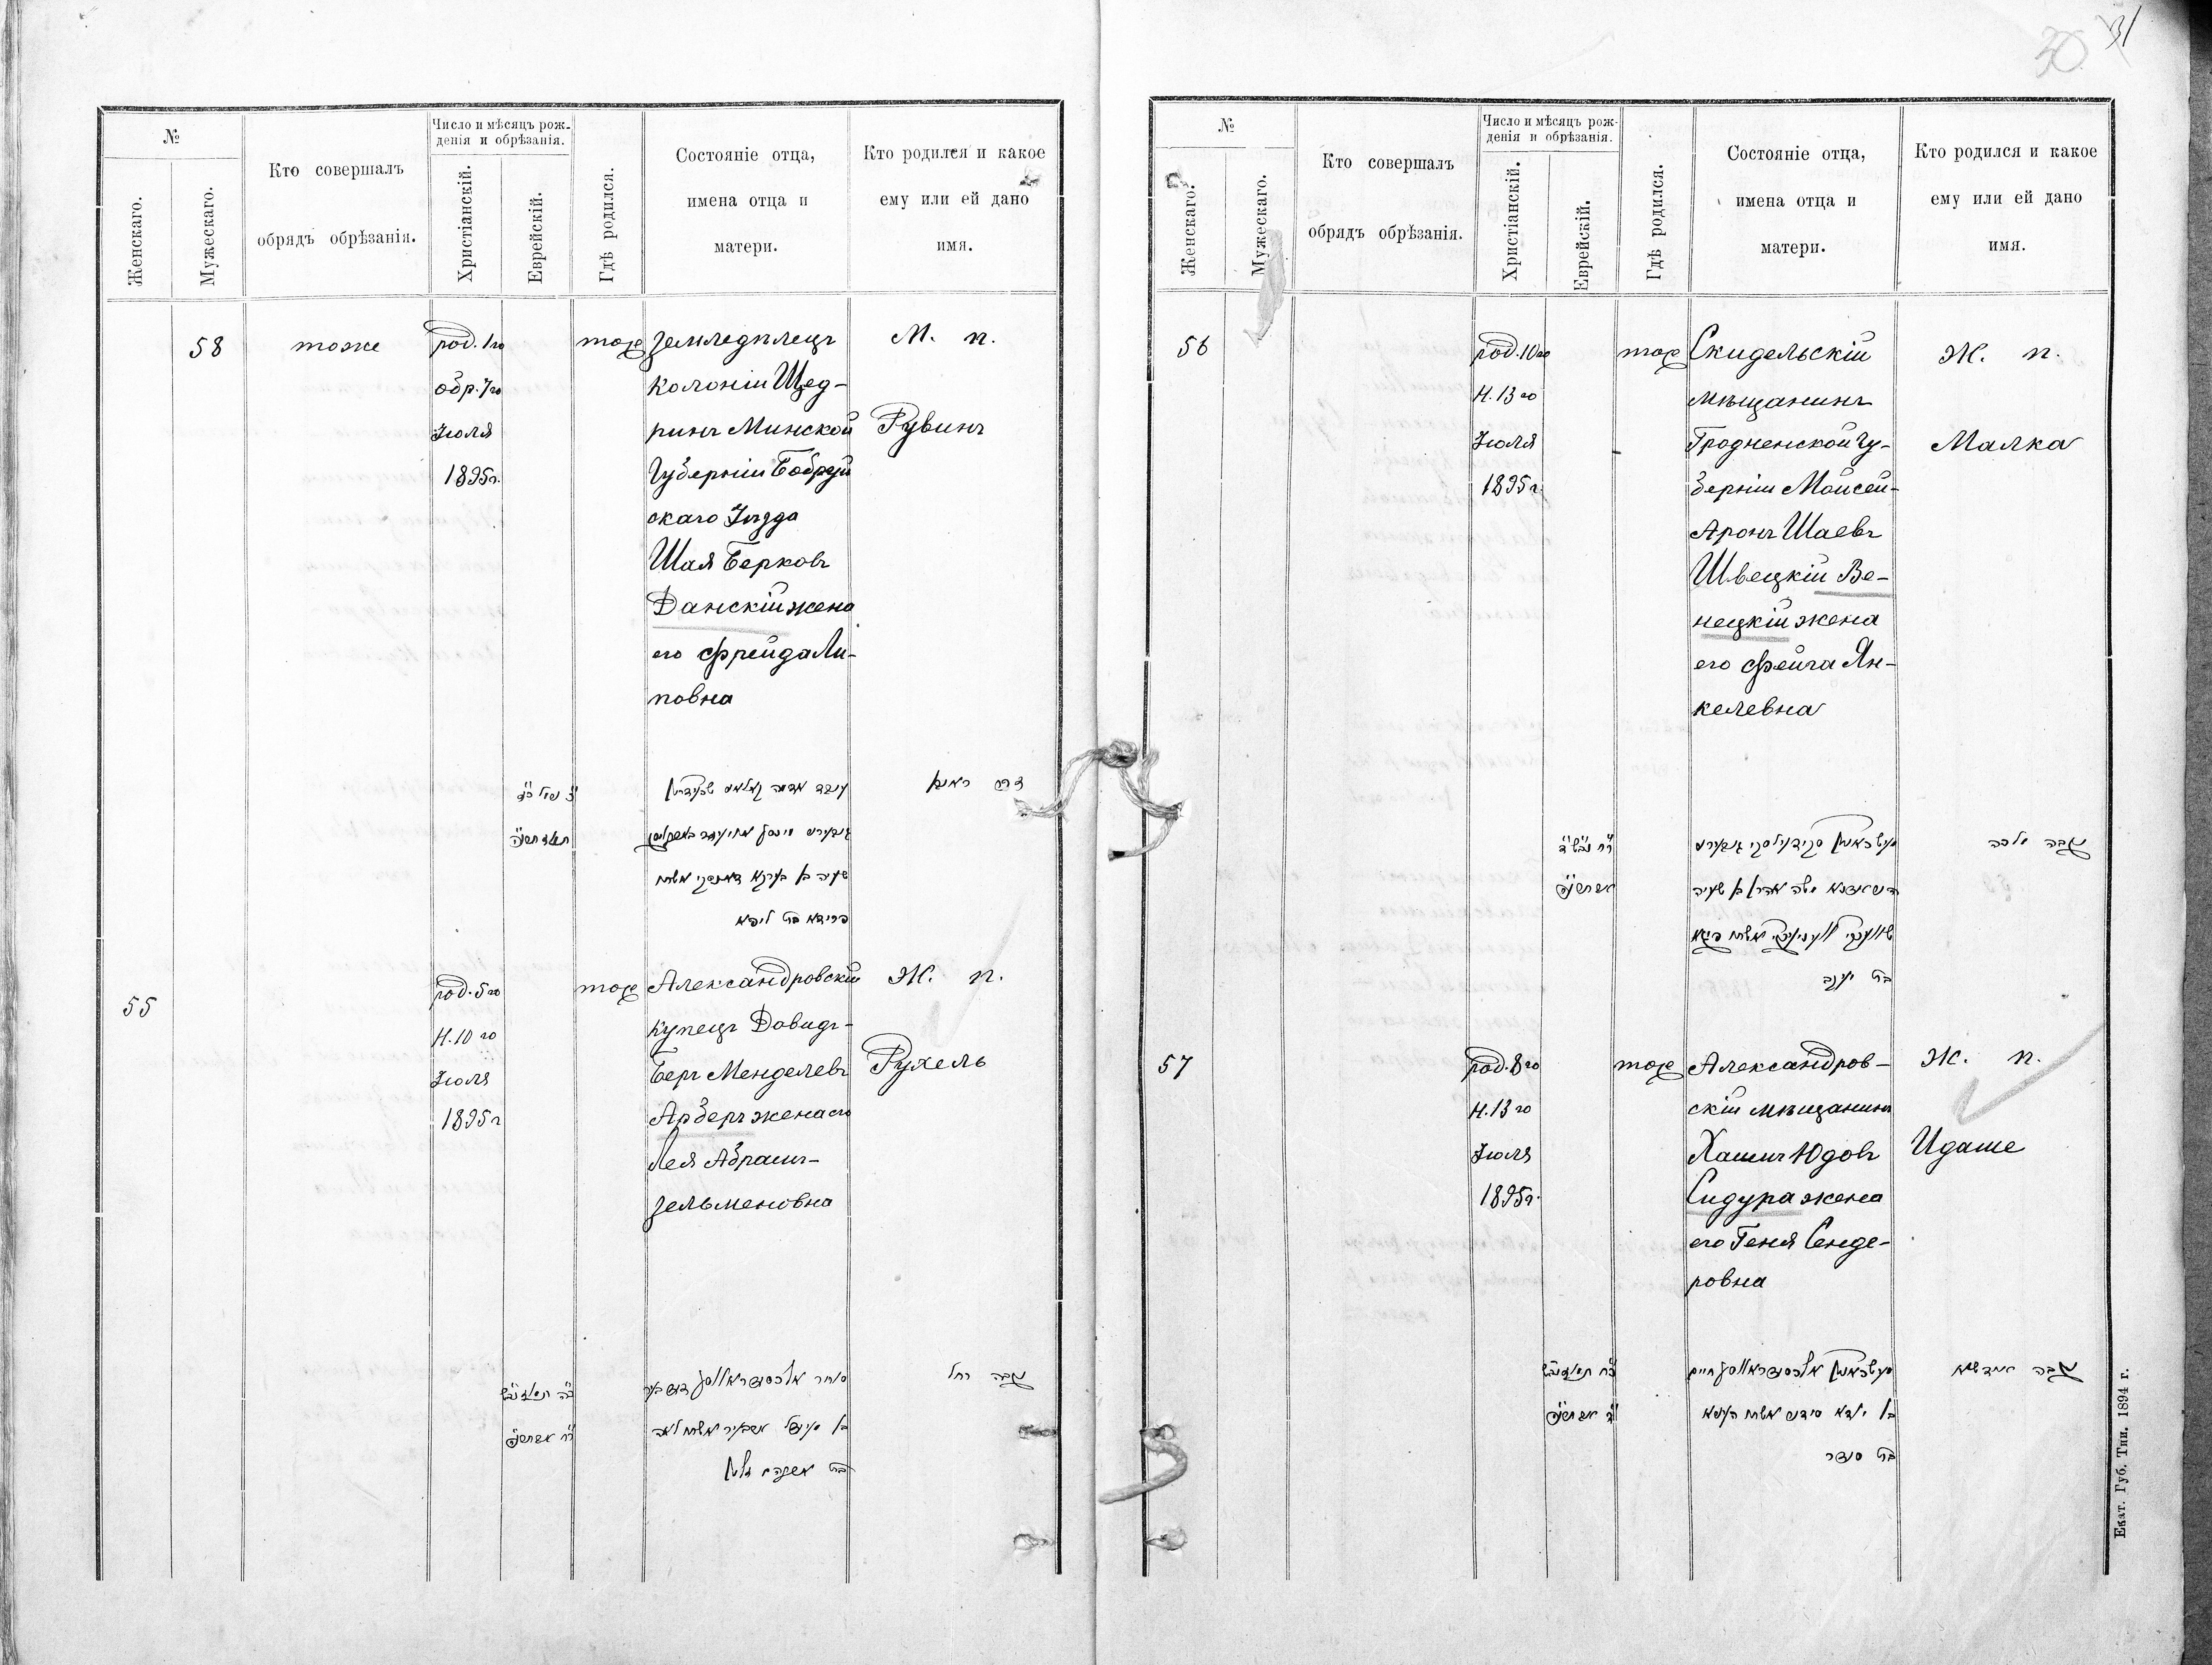 31
30
№
Женскаго.
Мужескаго.
Кто совершалъ
обрядъ обрѣзанія.
Число и мѣсяцъ рож-
денія и обрѣзанія.
Христіанскій.
Еврейскій.
Гдѣ родился.
Состояніе отца,
имена отца и
матери.
Кто родился и какое
ему или ей дано
имя.
58
тоже
род. 1го
обр. 7го
Іюля
1895г.
тоже
Земледѣлецъ
колоніи Щед-
ринъ Минской
Губерніи Бобруй
скаго Уѣзда
Шая Берковъ
Данскій жена
его Фрейда Ли-
повна
М. п.
Рувинъ
שעיה בן בערקא דאנסקי אשתו
פריידא בת ליפא
זכר ראובן
55
род. 5го
Н. 10го
Іюля
1895г
тоже
Александровскій
купецъ Довидъ-
Беръ Менделевъ
Арберъ жена его
Лея Абрамъ-
Зельменовна
Ж. п.
Рухель
נקבה רחל
№
Женскаго.
Мужескаго.
Кто совершалъ
обрядъ обрѣзанія.
Число и мѣсяцъ рож-
денія и обрѣзанія.
Христіанскій.
Еврейскій.
Гдѣ родился.
Состояніе отца,
имена отца и
матери.
Кто родился и какое
ему или ей дано
имя.
56
род. 10го
Н. 13го
Іюля
1895г.
тоже
Скидельскій
мѣщанинъ
Гродненской Гу-
берніи Мойсей-
Аронъ Шаевъ
Швецкій Ве-
нецкій жена
его Фейга Ян-
келевна
Ж. п.
Малка
נקבה מלכה
בת יענקב
57
род. 8го
Н. 13го
Іюля
1895г.
тоже
Александров-
скій мѣщанинъ
Хаимъ Юдовъ
Сидура жена
его Геня Сенде-
ровна
Ж. п.
Идаше
נקבה אידשא
בת סענדר
Екат. Губ. Тип. 1894 г.